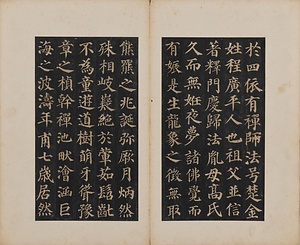 於四依有禪師法號楚金
姓程廣平人也祖父並信
著釋門慶歸法胤母高氏
久而無姙夜夢諸佛覺而
有娠是生龍象之徵無取
熊羆之兆誕彌厥月炳然
殊相岐嶷絕於葷茹髫齔
不為童遊道樹萌牙聳豫
章之楨幹禪池畎澮涵巨
海之波濤年甫七歲居然